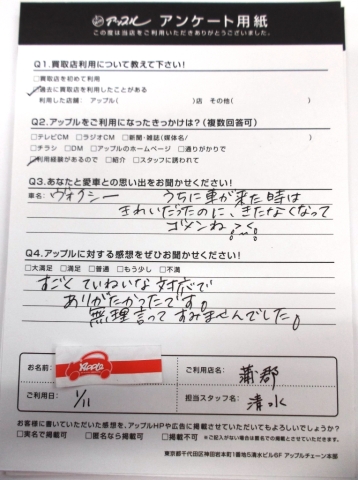 アップル アンケート用紙
この度は当店をご利用いただきありがとうございました。
Q1.買取店利用について教えて下さい!
□買取店を初めて利用
□過去に買取店を利用したことがある
利用した店舗: アップル( )店 その他( )
Q2.アップルをご利用になったきっかけは?(複数回答可)
□テレビCM □ラジオCM □新聞・雑誌(媒体名/ )
□チラシ □DM □アップルのホームページ □通りがかりで
□利用経験があるので □紹介 □スタッフに誘われて
Q3.あなたと愛車との思い出をお聞かせください!
車名: ヴォクシー うちに車が来た時は
きれいだったのに、きたなくなって
ゴメンね
Q4.アップルに対する感想をぜひお聞かせください!
□大満足 □満足 □普通 □もう少し □不満
すごくていねいな対応で
ありがたかったです。
無理言ってすみませんでした。
お名前:
Apple
ご利用店名: 蒲郡
ご利用日: 1/11
担当スタッフ名: 清水
お客様に書いていただいた感想を、アップルHPや広告に掲載させていただいてもよろしいでしょうか?
□実名で掲載可 □匿名なら掲載可 □掲載不可 ※ご記入がない場合は匿名での掲載とさせていただきます。
東京都千代田区神田岩本町1番地5清水ビル6F アップルチェーン本部